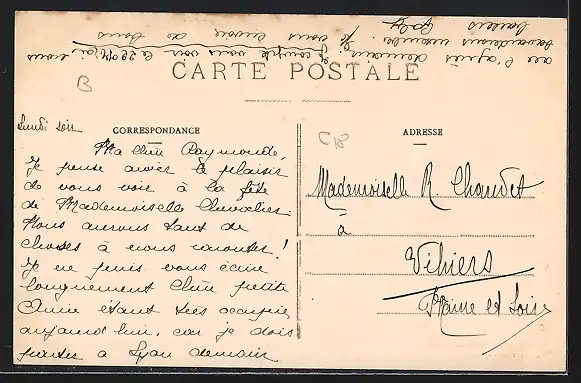 CARTE POSTALE
CORRESPONDANCE
ADRESSE
B
CB
Lundi soir
Ma chère Raymonde,
Je pense avoir le plaisir
de vous voir à la fête
de Mademoiselle Chevalier.
Nous aurons tant de
choses à nous raconter!
Je ne puis vous écrire
longuement chère petite
Amie étant très occupée
aujourd'hui, car je dois
partir à Lyon demain
l'après demain. Je
compte vous voir le 22
vous envoie de bons
baisers
Gaby
Mademoiselle R. Chaudet
à
Vihiers
Maine et Loire